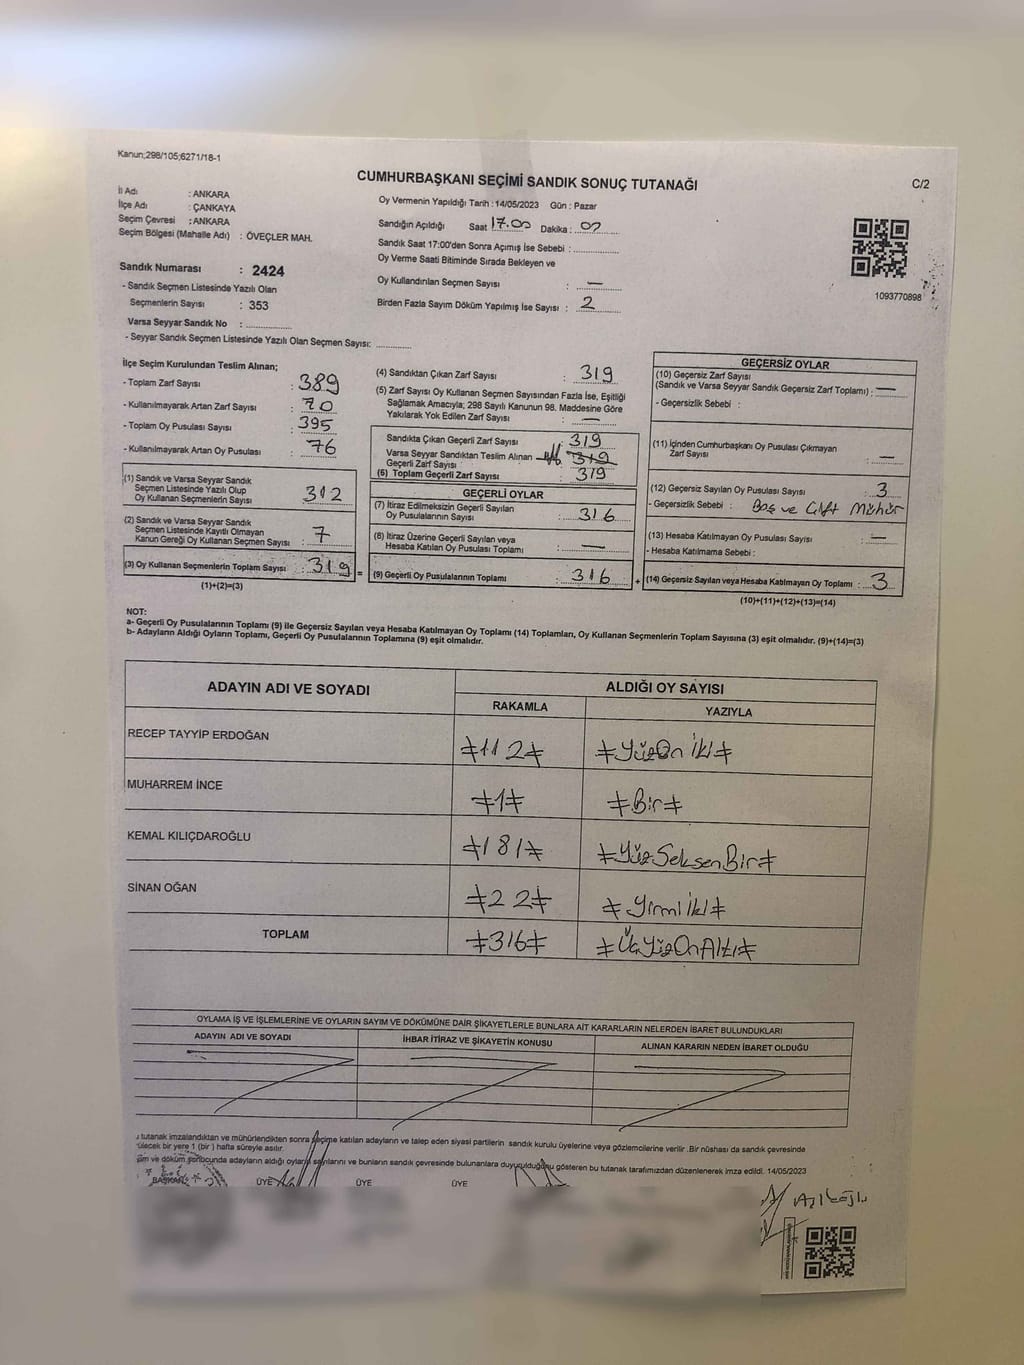 Kanun;298/105;6271/18-1
CUMHURBAŞKANI SEÇİMİ SANDIK SONUÇ TUTANAĞI
C/2
İl Adı : ANKARA
İlçe Adı : ÇANKAYA
Seçim Çevresi : ANKARA
Seçim Bölgesi (Mahalle Adı) : ÖVEÇLER MAH.
Oy Vermenin Yapıldığı Tarih : 14/05/2023 Gün : Pazar
Sandığın Açıldığı Saat 17.00 Dakika :
Sandık Saat 17:00'den Sonra Açımış İse Sebebi :
Oy Verme Saati Bitiminde Sırada Bekleyen ve
Oy Kullandırılan Seçmen Sayısı : —
Birden Fazla Sayım Döküm Yapılmış İse Sayısı : 2
1093770898
Sandık Numarası : 2424
- Sandık Seçmen Listesinde Yazılı Olan
Seçmenlerin Sayısı : 353
Varsa Seyyar Sandık No :
- Seyyar Sandık Seçmen Listesinde Yazılı Olan Seçmen Sayısı:
İlçe Seçim Kurulundan Teslim Alınan;
- Toplam Zarf Sayısı : 389
- Kullanılmayarak Artan Zarf Sayısı : 70
- Toplam Oy Pusulası Sayısı : 395
- Kullanılmayarak Artan Oy Pusulası : 76
(1) Sandık ve Varsa Seyyar Sandık
Seçmen Listesinde Yazılı Olup
Oy Kullanan Seçmenlerin Sayısı : 312
(2) Sandık ve Varsa Seyyar Sandık
Seçmen Listesinde Kayıtlı Olmayan
Kanun Gereği Oy Kullanan Seçmen Sayısı : 7
(3) Oy Kullanan Seçmenlerin Toplam Sayısı : 319 =
(1)+(2)=(3)
(4) Sandıktan Çıkan Zarf Sayısı : 319
(5) Zarf Sayısı Oy Kullanan Seçmen Sayısından Fazla İse, Eşitliği
Sağlamak Amacıyla; 298 Sayılı Kanunun 98. Maddesine Göre
Yakılarak Yok Edilen Zarf Sayısı : —
Sandıkta Çıkan Geçerli Zarf Sayısı : 319
Varsa Seyyar Sandıktan Teslim Alınan 319
Geçerli Zarf Sayısı :
(6) Toplam Geçerli Zarf Sayısı : 319
GEÇERLİ OYLAR
(7) İtiraz Edilmeksizin Geçerli Sayılan
Oy Pusulalarının Sayısı : 316
(8) İtiraz Üzerine Geçerli Sayılan veya
Hesaba Katılan Oy Pusulası Toplamı : —
(9) Geçerli Oy Pusulalarının Toplamı : 316 +
GEÇERSİZ OYLAR
(10) Geçersiz Zarf Sayısı
(Sandık ve Varsa Seyyar Sandık Geçersiz Zarf Toplamı) : —
- Geçersizlik Sebebi :
(11) İçinden Cumhurbaşkanı Oy Pusulası Çıkmayan
Zarf Sayısı : —
(12) Geçersiz Sayılan Oy Pusulası Sayısı : 3
- Geçersizlik Sebebi : Boş ve Çift Mühür
(13) Hesaba Katılmayan Oy Pusulası Sayısı : —
- Hesaba Katılmama Sebebi :
(14) Geçersiz Sayılan veya Hesaba Katılmayan Oy Toplamı : 3
(10)+(11)+(12)+(13)=(14)
NOT:
a- Geçerli Oy Pusulalarının Toplamı (9) ile Geçersiz Sayılan veya Hesaba Katılmayan Oy Toplamı (14) Toplamları, Oy Kullanan Seçmenlerin Toplam Sayısına (3) eşit olmalıdır. (9)+(14)=(3)
b- Adayların Aldığı Oyların Toplamı, Geçerli Oy Pusulalarının Toplamına (9) eşit olmalıdır.
ADAYIN ADI VE SOYADI
ALDIĞI OY SAYISI
RAKAMLA YAZIYLA
RECEP TAYYİP ERDOĞAN ≠112≠ ≠YüzOn İki≠
MUHARREM İNCE ≠1≠ ≠Bir≠
KEMAL KILIÇDAROĞLU ≠181≠ ≠YüzSeksenBir≠
SİNAN OĞAN ≠22≠ ≠Yirmi İki≠
TOPLAM ≠316≠ ≠ÜçYüzOnAltı≠
OYLAMA İŞ VE İŞLEMLERİNE VE OYLARIN SAYIM VE DÖKÜMÜNE DAİR ŞİKAYETLERLE BUNLARA AİT KARARLARIN NELERDEN İBARET BULUNDUKLARI
ADAYIN ADI VE SOYADI
İHBAR İTİRAZ VE ŞİKAYETİN KONUSU
ALINAN KARARIN NEDEN İBARET OLDUĞU
tutanak imzalandıktan ve mühürlendikten sonra seçime katılan adayların ve talep eden siyasi partilerin sandık kurulu üyelerine veya gözlemcilerine verilir .Bir nüshası da sandık çevresinde
bir yere 1 (bir) hafta süreyle asılır.
ve döküm sonucunda adayların aldığı oyların sayılarını ve bunların sandık çevresinde bulunanlara duyurulduğunu gösteren bu tutanak tarafımızdan düzenlenerek imza edildi. 14/05/2023
BAŞKAN ÜYE ÜYE ÜYE